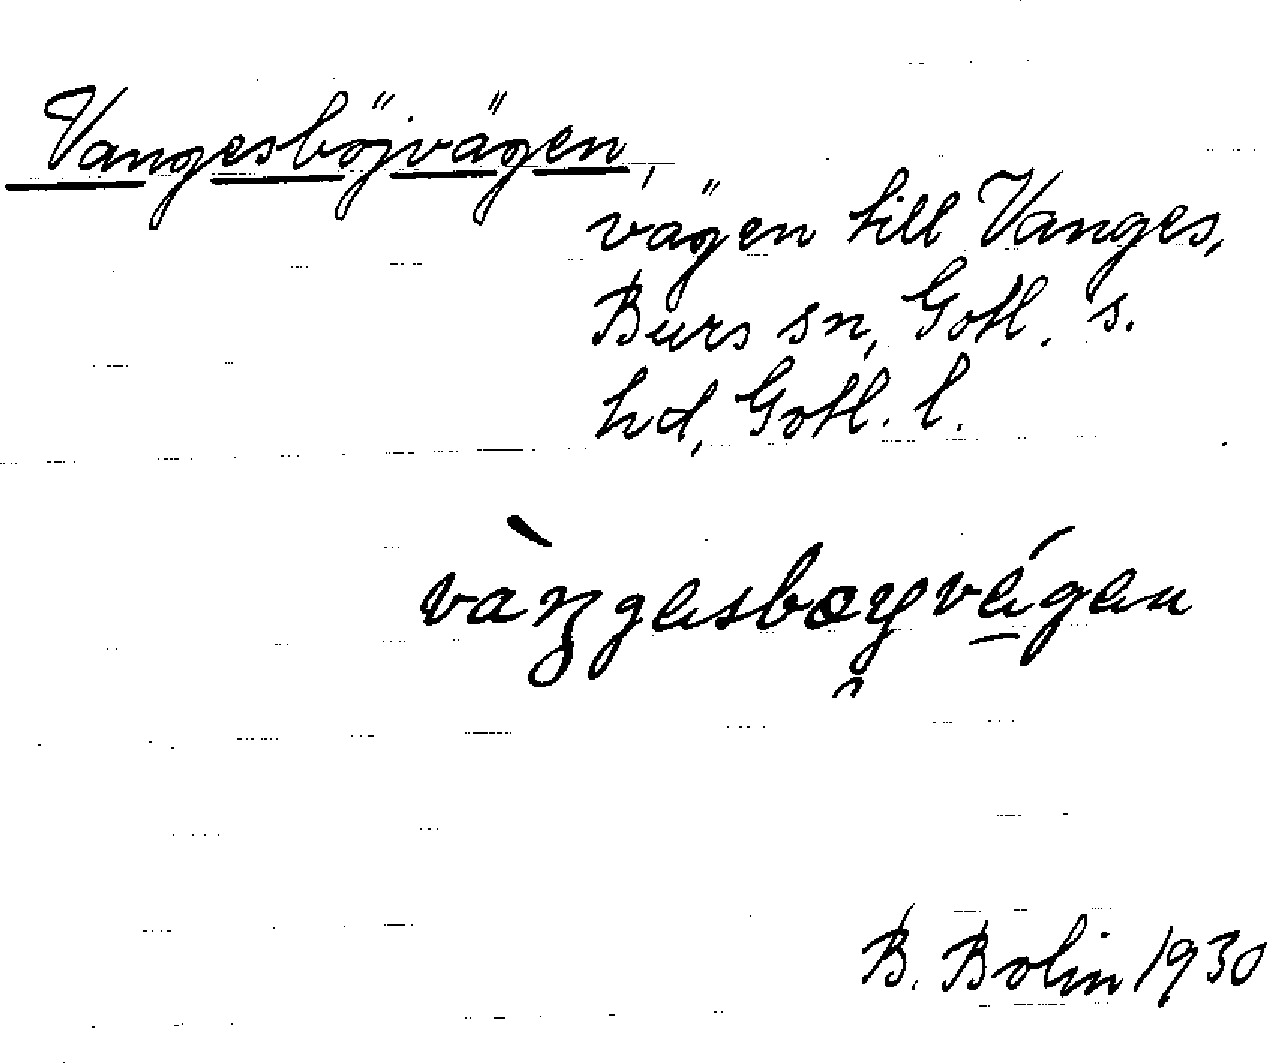 Vangesböjvägen,
vägen till Vanges,
Burs sn, Gotl. s.
hd, Gotl. l.
B. Bolin 1930